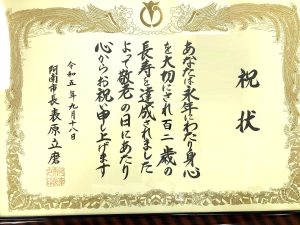 祝状
あなたは永年にわたり身心
を大切にされ百二歳の
長寿を達成されました
よって敬老の日にあたり
心からお祝い申し上げます
令和五年九月十八日
阿南市長表原立磨